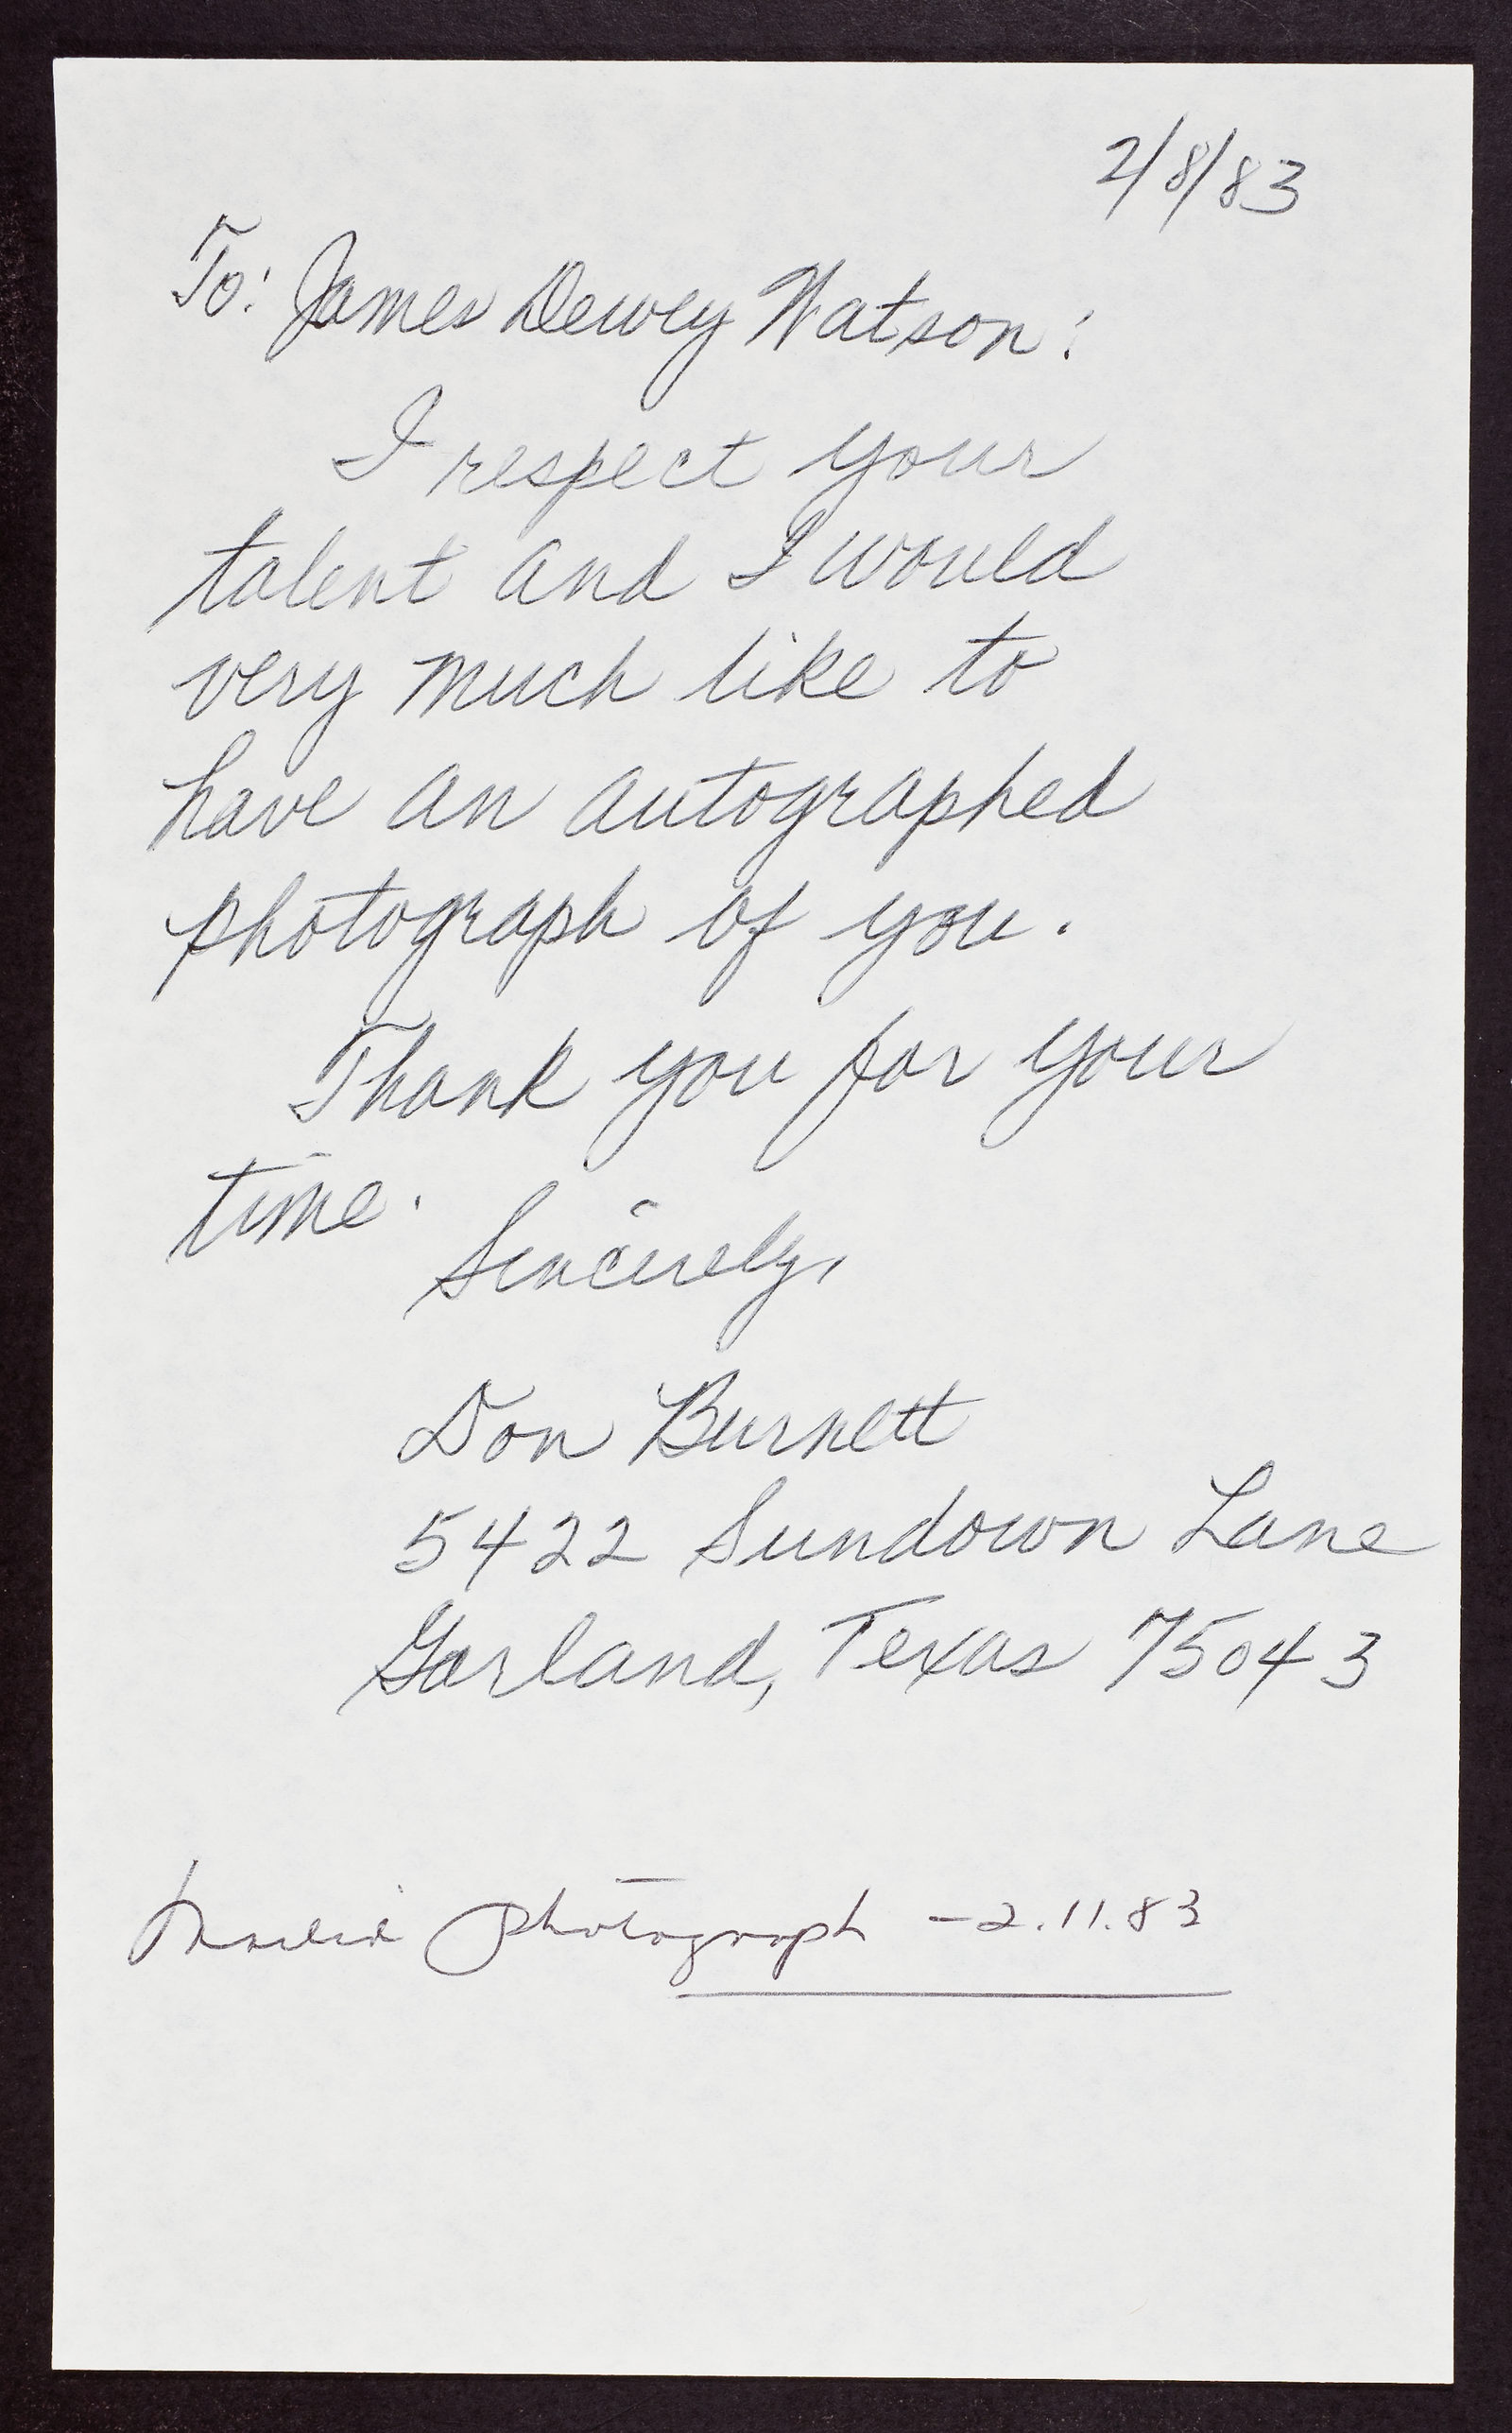 2/8/83
To: James Dewey Watson:
I respect your
talent and I would
very much like to
have an autographed
photograph of you.
Thank you for your
time.
Sincerely,
Don Burnett
5422 Sundown Lane
Garland, Texas 75043
Mailed photograph - 2.11.83